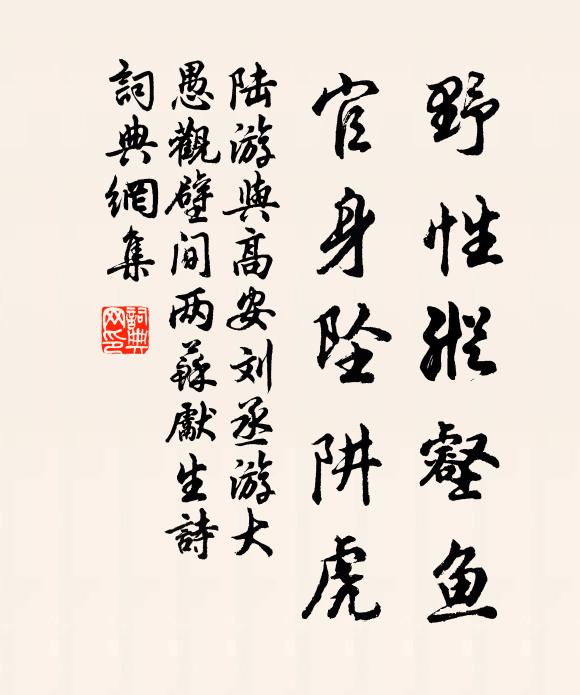 野性縱壑鱼
官身坠阱虎
陆游與高安刘丞游大
愚觀壁间两蘇獻生詩
詞典網集
詞典网印